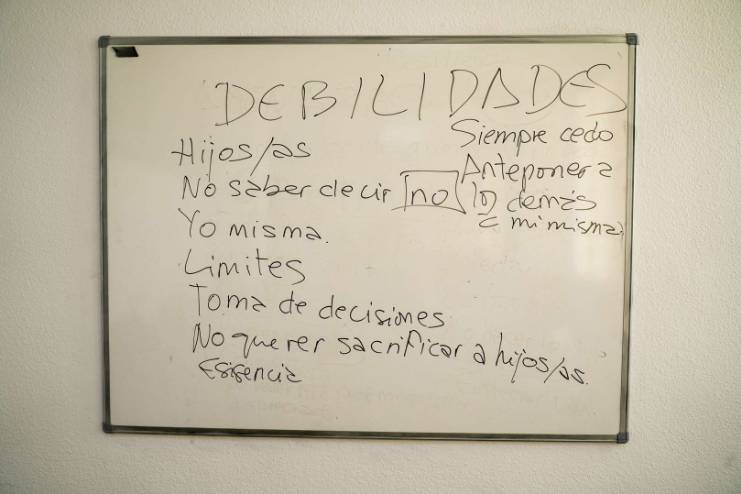 DEBILIDADES
Hijos/as
No saber decir no
Yo misma.
Limites
Toma de decisiones
No querer sacrificar a hijos/as.
Esigencia
Siempre cedo
Anteponer a
los demás
a mi misma